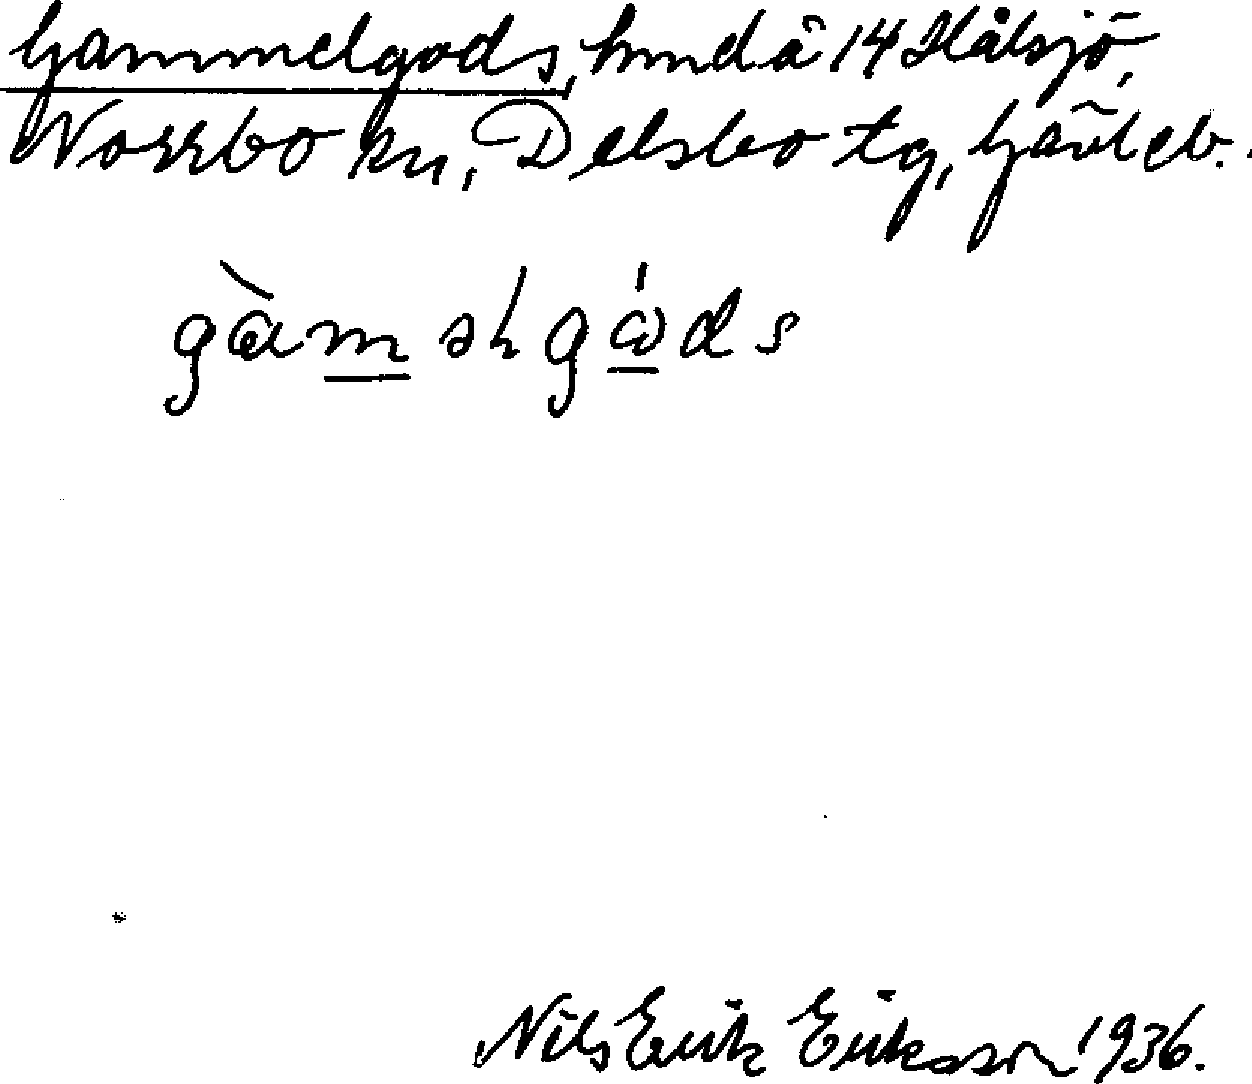 Gammelgods, hmd å 14 Hålsjö,
Norrbo sn, Delsbo tg, Gävleb.
Nils Erik Eriksson 1936.